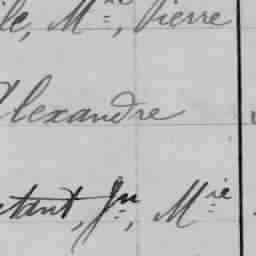 ile, Mie, Pierre
Alexandre
stant, Jn, Mie